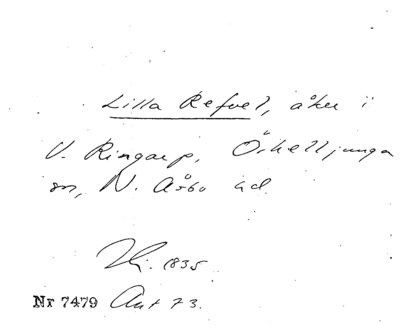 Lilla Refvel, åker i
V. Ringarp, Örkelljunga
sn, N. Åsbo hd
Hi. 1835
Nr 7479 Akt 73.